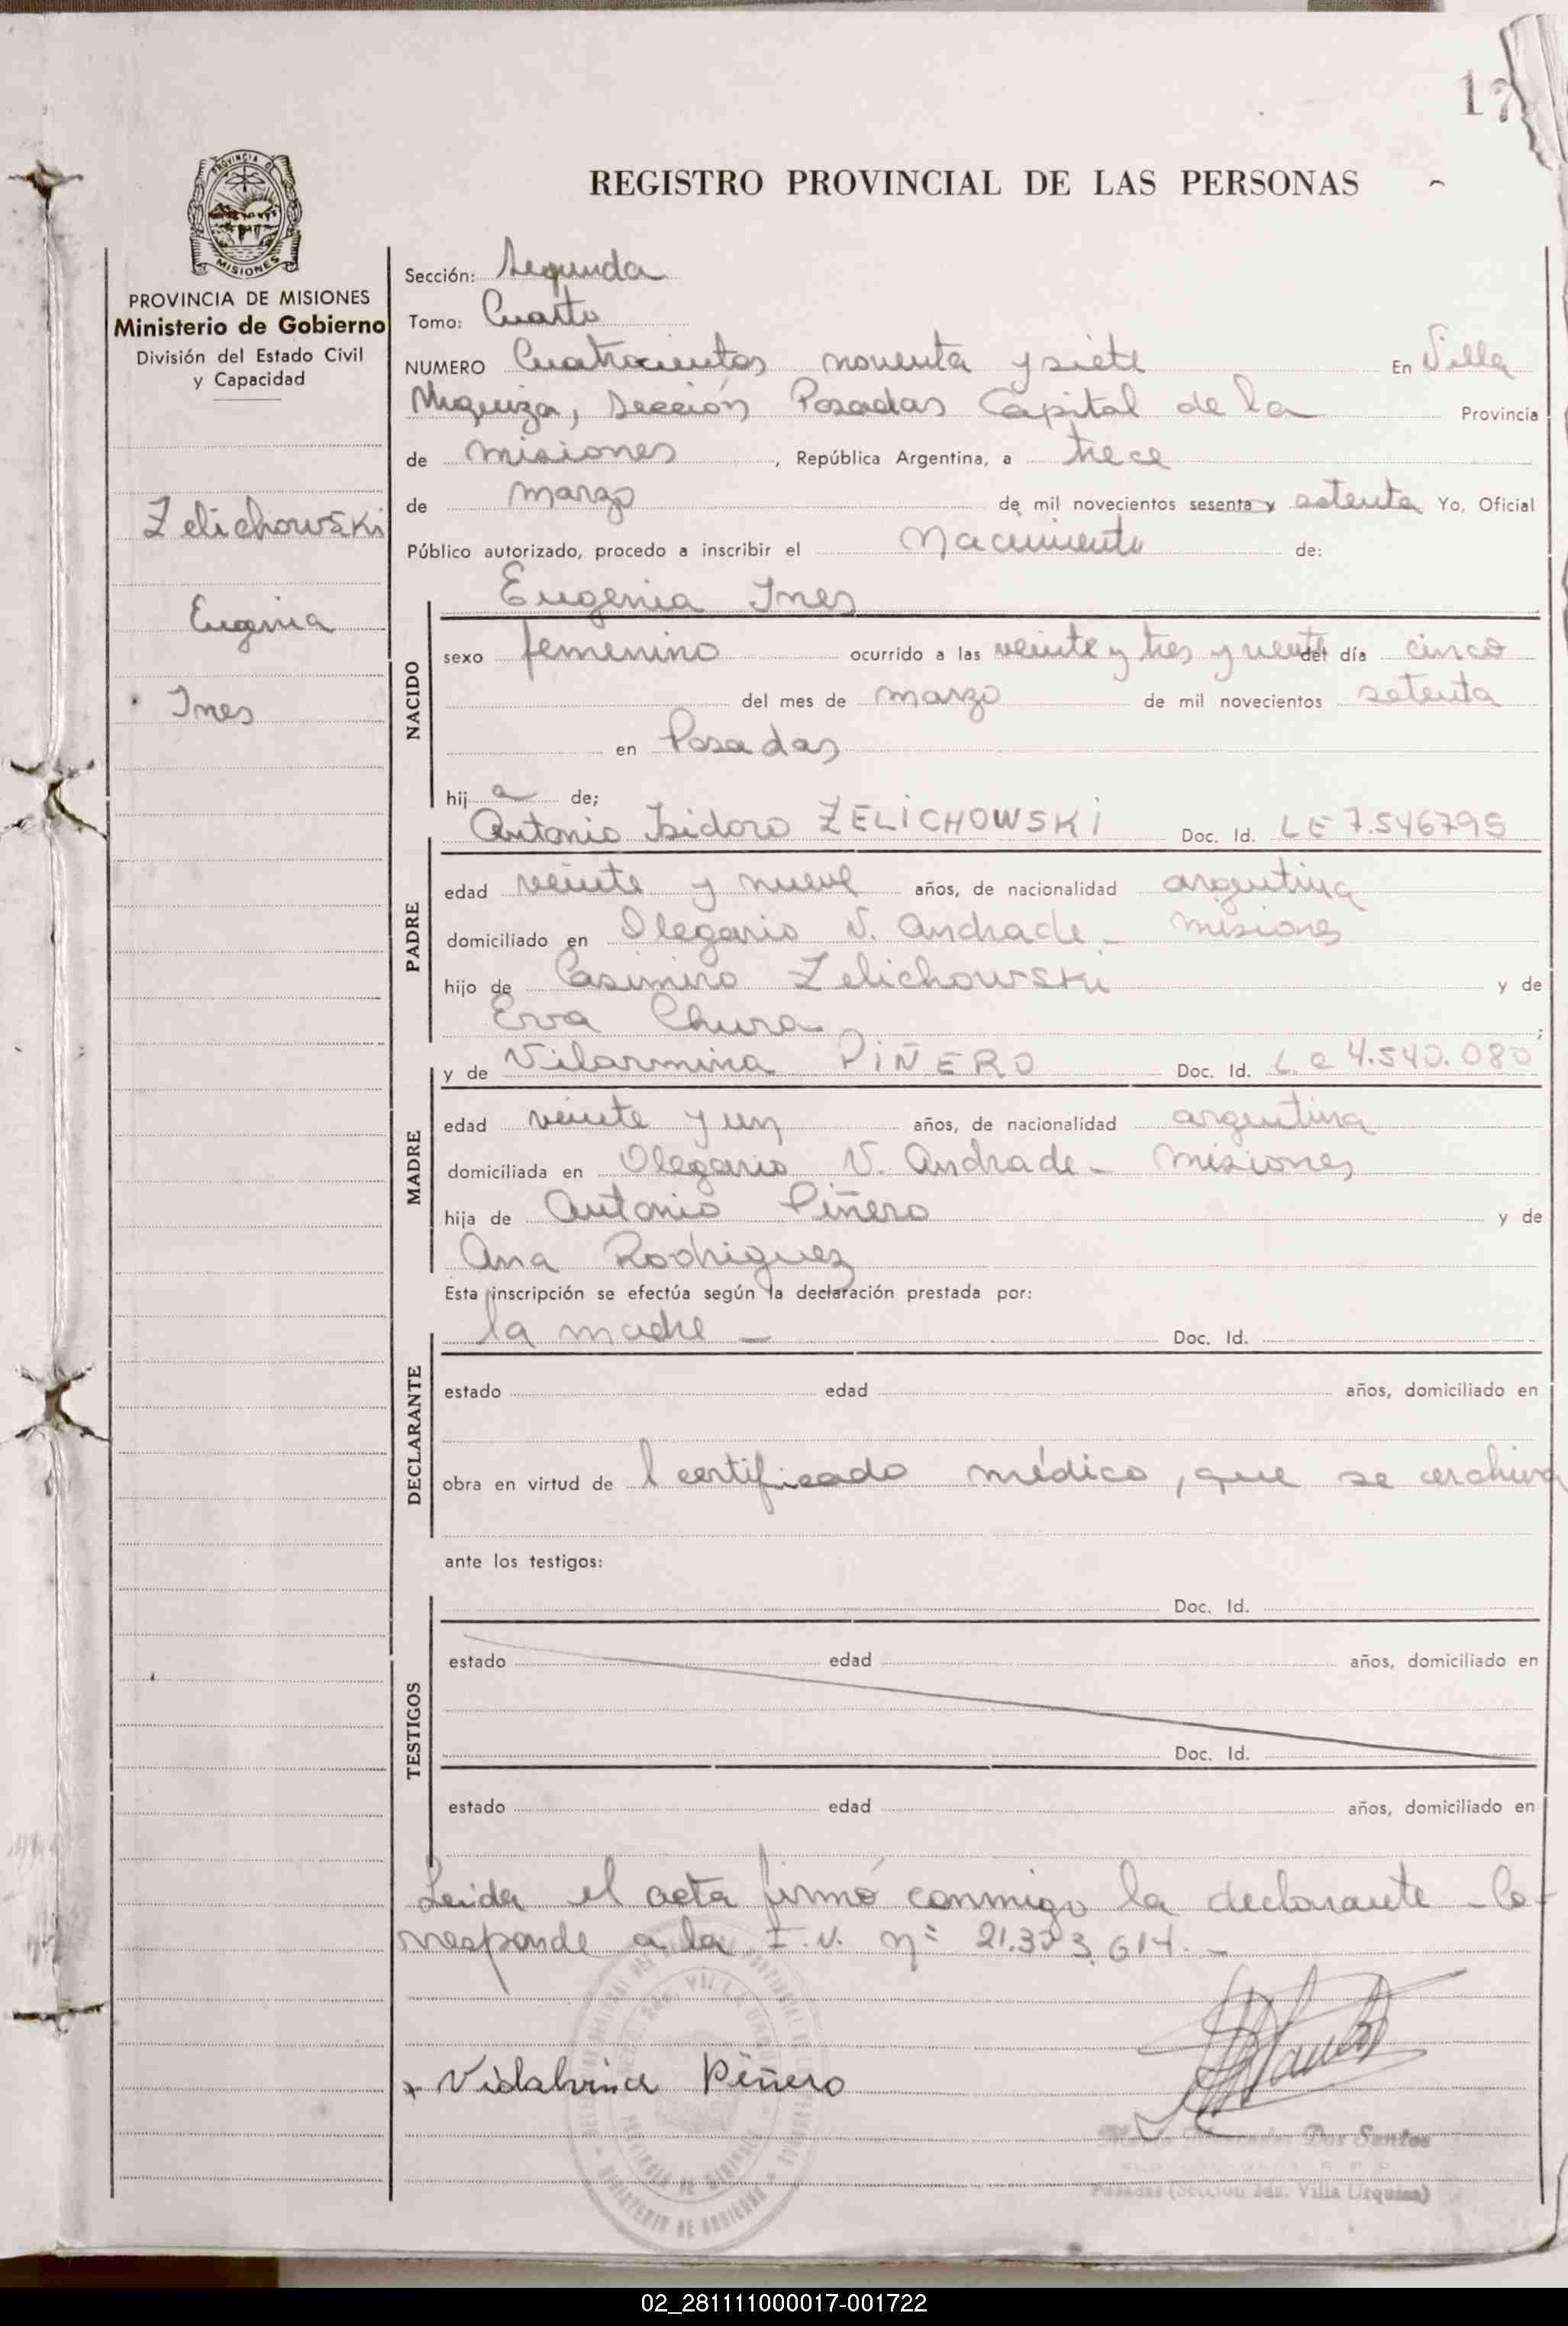 17
PROVINCIA DE
MISIONES
REGISTRO PROVINCIAL DE LAS PERSONAS
PROVINCIA DE MISIONES
Ministerio de Gobierno
División del Estado Civil
y Capacidad
Zelichowski
Eugenia
Ines
Sección: Segunda
Tomo: Cuarto
NUMERO Cuatrocientos noventa y siete En Villa
Urquiza, Sección Posadas Capital de la Provincia
de Misiones, República Argentina, a trece
de marzo de mil novecientos sesenta y setenta Yo, Oficial
Público autorizado, procedo a inscribir el Nacimiento de:
Eugenia Ines
NACIDO
sexo femenino ocurrido a las veinte y tres y veinte del día cinco
del mes de marzo de mil novecientos setenta
en Posadas
hij a de;
Antonio Isidoro ZELICHOWSKI Doc. Id. LE 7.546795
PADRE
edad veinte y nueve años, de nacionalidad argentina
domiciliado en Olegario V. Andrade - Misiones
hijo de Casimiro Zelichowski y de
Eva Chura ;
y de Vilarmina PIÑERO Doc. Id. L.C 4.540.080
MADRE
edad veinte y un años, de nacionalidad argentina
domiciliada en Olegario V. Andrade - Misiones
hija de Antonio Piñero y de
Ana Rodriguez
Esta inscripción se efectúa según la declaración prestada por:
la madre - Doc. Id.
DECLARANTE
estado edad años, domiciliado en
obra en virtud de l certificado médico, que se archiva
ante los testigos:
Doc. Id.
TESTIGOS
estado edad años, domiciliado en
Doc. Id.
estado edad años, domiciliado en
Leida el acta firmó conmigo la declarante - Co-
rresponde a la I. V. nº 21.323.614. -
Vidalvina Piñero
Dos Santos
Posadas (Sección 2da. Villa Urquiza)
02_281111000017-001722